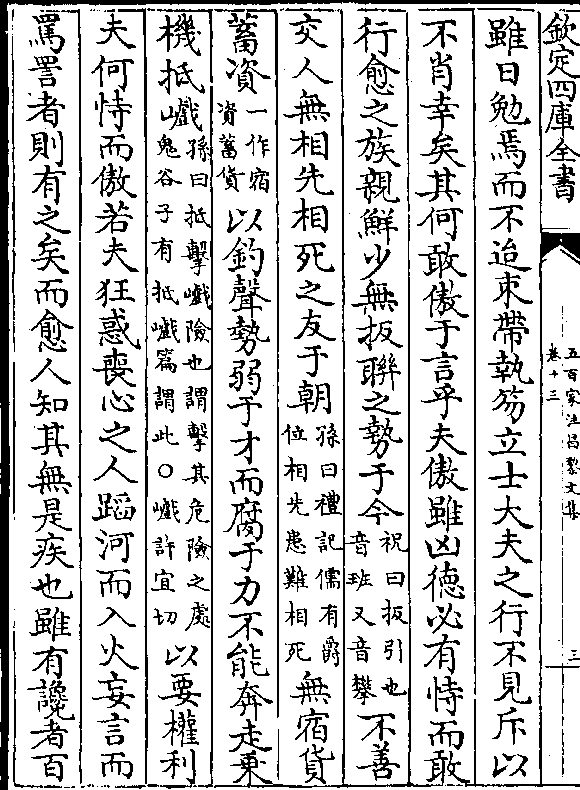 欽定四庫全書
五百家注昌黎文集
卷十三
三
雖日勉焉而不迨束帶執笏立士大夫之行不見斥以
不肖幸矣其何敢傲于言乎夫傲雖凶德必有恃而敢
行愈之族親鮮少無扳聯之勢于今祝曰扳引也音班又音攀不善
交人無相先相死之友于朝孫曰禮記儒有爵位相先患難相死無宿貨
蓄資一作宿資蓄貨以釣聲勢弱于才而腐于力不能奔走乗
機抵巇孫曰抵擊巇險也謂擊其危險之處鬼谷子有抵巇篇謂此○巇許宜切以要權利
夫何恃而傲若夫狂惑喪心之人蹈河而入火妄言而
罵詈者則有之矣而愈人知其無是疾也雖有讒者百